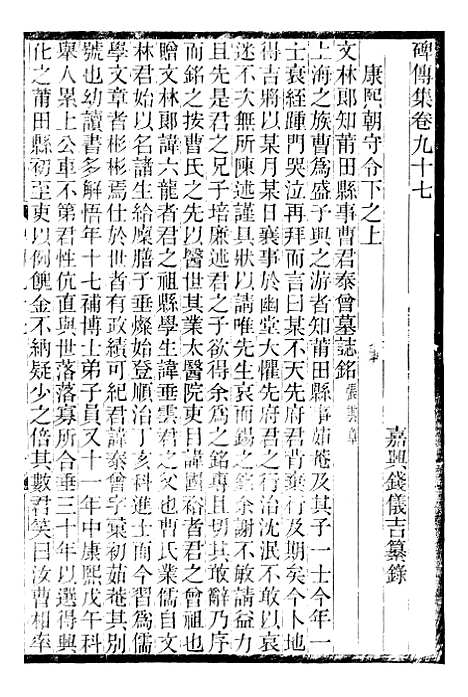 碑傳集卷九十七
嘉興錢儀吉纂錄
康熙朝守令下之上
文林郎知莆田縣事曹君泰曾墓誌銘 張雲章
上海之族曹爲盛予與之游者知莆田縣事茹菴及其子一士今年一
士衰絰踵門哭泣再拜而言曰某不天先府君背棄行及期矣今卜地
得吉將以某月某日襄事於幽堂大懼先府君之行治沈泯不有以昭
迷不次無所陳述謹具狀以請唯先生哀而錫之銘余謝不敏請益力
且先是君之兄子培廉述君之子欲得余爲之銘尊且切其敢辭乃序
而銘之按曹氏之先以醫世其業太醫院吏目諱國裕者君之曾祖也
贈文林郎諱六龍者君之祖縣學生諱垂雲君之父也曹氏業儒自文
林君始以名諸生給廩膳子垂燦始登順治丁亥科進士而今習爲儒
學文章者彬彬焉仕於世者有政績可紀君諱泰曾字彙初茹菴其別
號也幼讀書多解悟年十七補博士弟子員又十一年中康熙戊午科
舉人累上公車不第君性伉直與世落落寡所合垂三十年以選得興
化之莆田縣初至吏以例餽金不納疑少之倍其數君笑曰汝曹相率